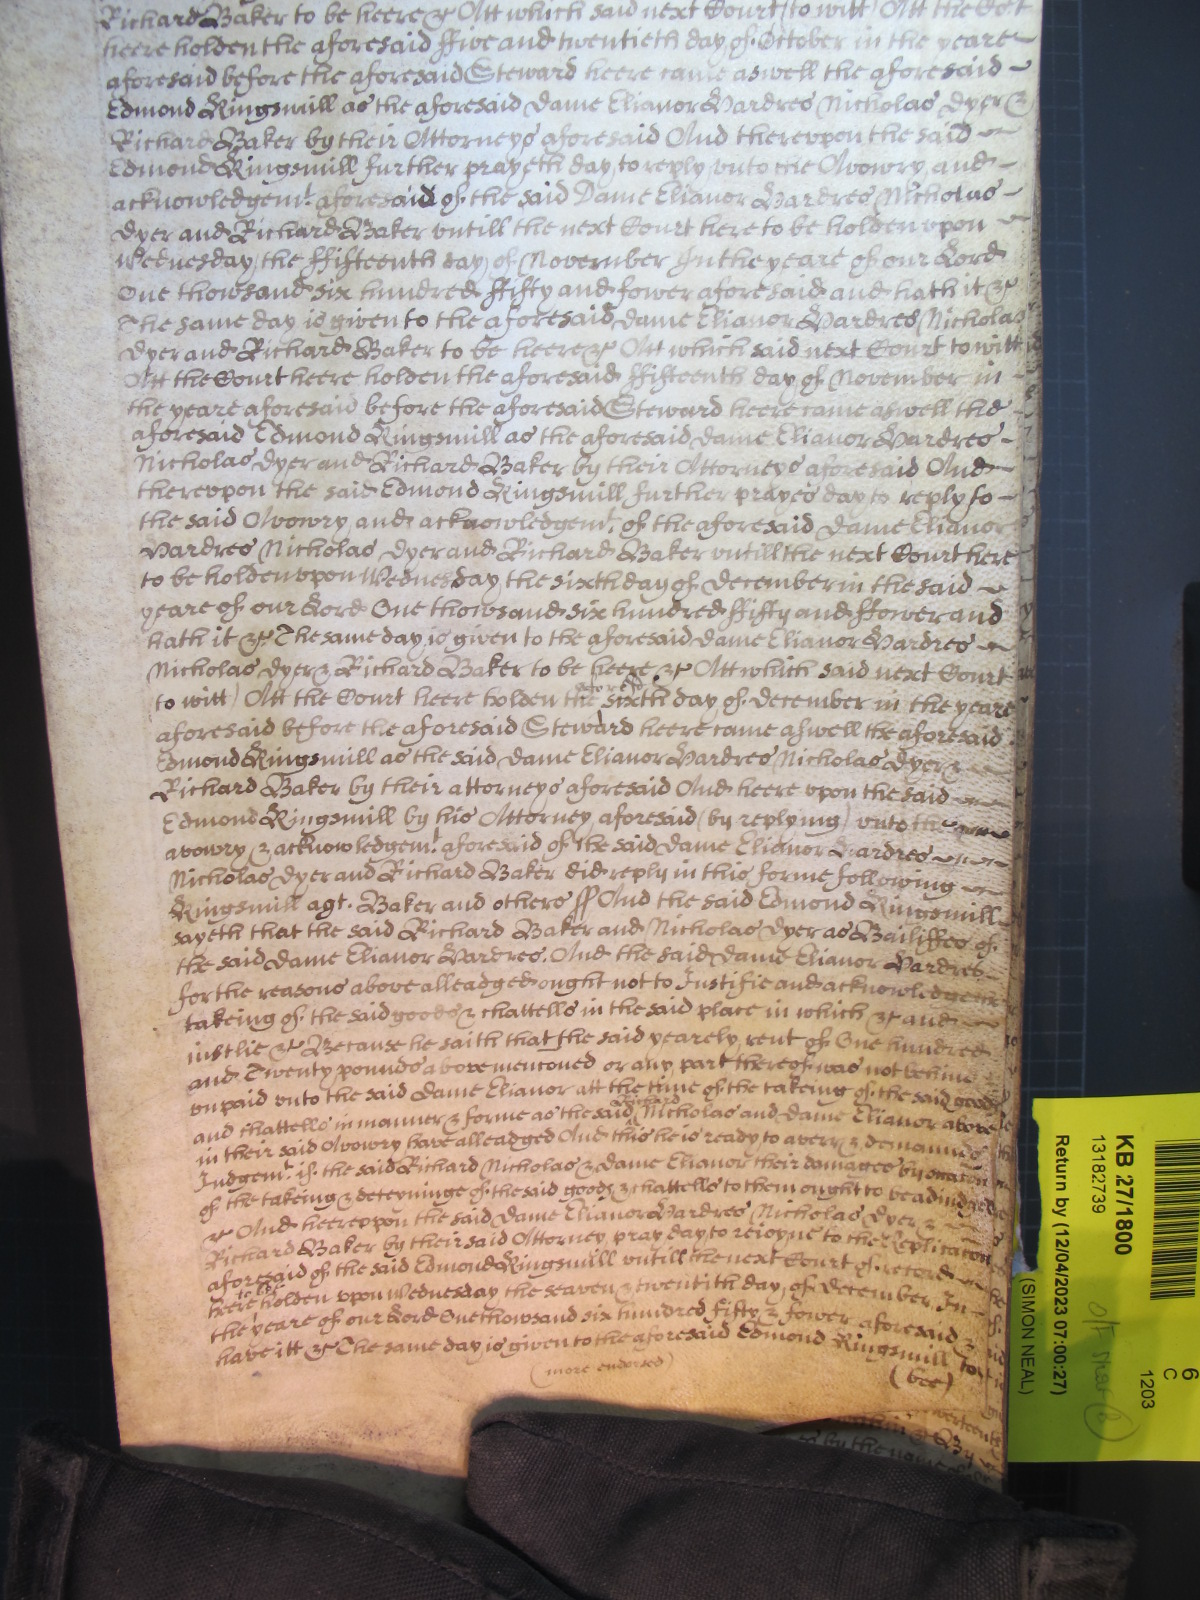 Richard Baker to be heere &c Att which said next Court (to witt) Att the Co't
heere holden the aforesaid ffive and twentieth day of October in the yeare
aforesaid before the aforesaid Steward heere came aswell the aforesaid
Edmond Kingsmill as the aforesaid Dame Elianor Vardres Nicholas Dyer &
Richard Baker by their Attorneys aforesaid And thereupon the said
Edmond Kingsmill further prayeth day to reply unto the Avowry and
acknowledgem.t aforesaid of the said Dame Elianor Vardres Nicholas
Dyer and Richard Baker untill the next Court here to be holden upon
Wednesday the ffifteenth day of November In the yeare of our Lord
One thowsand six hundred ffifty and fower aforesaid and hath it &c
The same day is given to the aforesaid Dame Elianor Vardres Nicholas
Dyer and Richard Baker to be heere &c Att which said next Court to witt
Att the Court heere holden the aforesaid ffifteenth day of November in
the yeare aforesaid before the aforesaid Steward heere came aswell the
aforesaid Edmond Kingsmill as the aforesaid Dame Elianor Vardres
Nicholas Dyer and Richard Baker by their Attorneys aforesaid And
thereupon the said Edmond Kingsmill further prayes day to reply to
the said Avowry and acknowledgem.t of the aforesaid Dame Elianor
Vardres Nicholas Dyer and Richard Baker untill the next Court here
to be holden upon Wednesday the sixth day of December in the said
yeare of our Lord One thowsand six hundred ffifty and ffower and
hath it &c The same day is given to the aforesaid Dame Elianor Vardres
Nicholas Dyer & Richard Baker to be heere &c Att which said next Court
to witt) Att the Court heere holden the aforesd sixth day of December in the yeare
aforesaid before the aforesaid Steward heere came aswell the aforesaid
Edmond Kingsmill as the said Dame Elianor Vardres Nicholas Dyer &
Richard Baker by their attorneys aforesaid And heere upon the said
Edmond Kingsmill by his Attorney aforesaid (by replying) unto the
avowry & acknowledgem.t aforesaid of the said Dame Elianor Vardres
Nicholas Dyer and Richard Baker did reply in this forme following
Kingsmill agt. Baker and others ss And the said Edmond Kingsmill
sayeth that the said Richard Baker and Nicholas Dyer as Bailiffes of
the said Dame Elianor Vardres. And the said Dame Elianor Vardres
for the reasons above alleadged ought not to Justifie and acknowledge the
takeing of the said goods & chattells in the said place in which &c and
iustlie &c Because he saith that the said yearely rent of One hundred
and Twenty pounds above mencioned or any part thereof was not behine
unpaid unto the said Dame Elianor att the time of the takeing of the said goods
and chattells in manner & forme as the said Richard Nicholas and Dame Elianor above
in their said Avowry have alleadged And this he is ready to averr & demannds
Judgem.t if the said Richard Nicholas & Dame Elianor their damages by occacion
of the takeing & deteyninge of the said goods & chattells to them ought to be adiudged
&c And heereupon the said Dame Elianor Vardres Nicholas Dyer &
Richard Baker by their said Attorney pray day to reioyne to the Replicacon
aforesaid of the said Edmond Kingsmill untill the next Court of record
heere to be holden upon Wednesday the seaven & twentith day of December In
the yeare of our Lord One thowsand six hundred fifty & fower aforesaid &
have itt &c The same day is given to the aforesaid Edmond Kingsmill to
(more endorsed)
(bee)
by the name
KB 27/1800
13182739
Return by (12/04/2023 07:00:27)
(SIMON NEAL)
6
C
1203